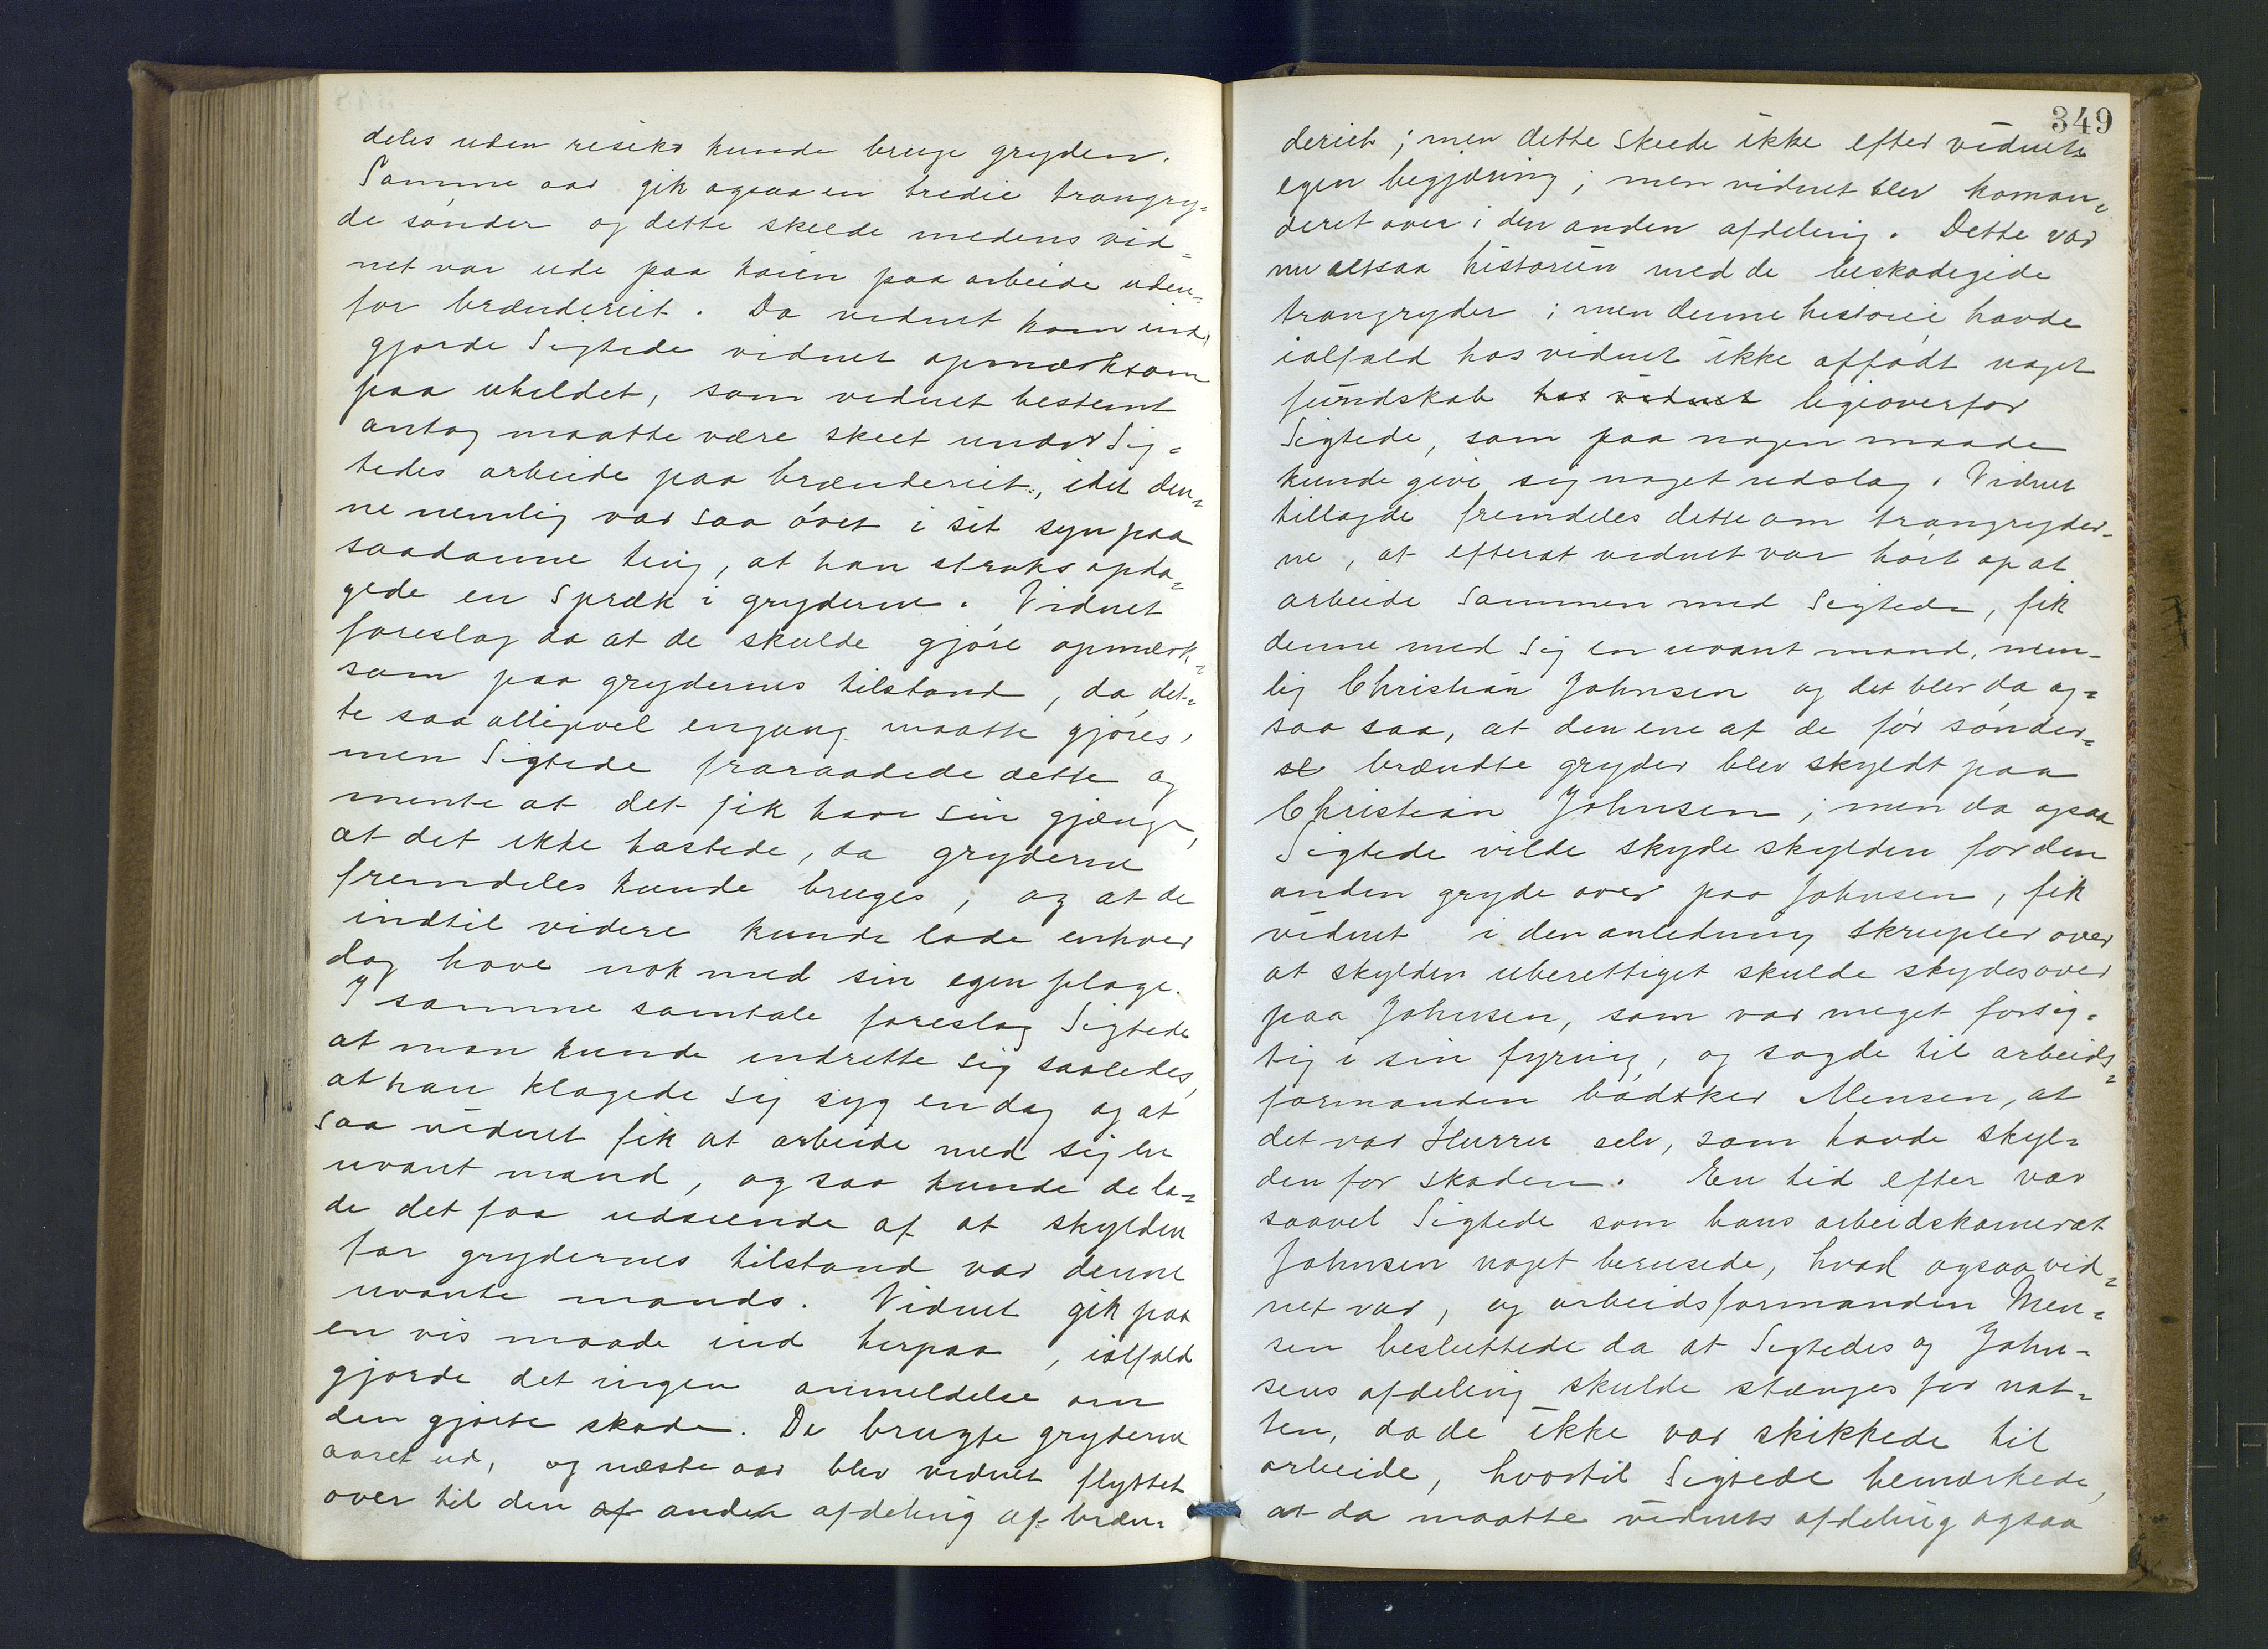 deles uden risiko kunde bruge gryden.
Samme aar gik ogsaa en tredie trangry=
de sønder og dette skeede medens vid=
net var ude paa kaien paa arbeide uden=
for brænderiet. Da vidnet kom ind,
gjorde Sigtede vidnet opmærksom
paa uheldet, som vidnet bestemt
antog maatte være skeet under Sig=
tedes arbeide paa brænderiet, idet den=
ne nemlig var saa øvet i sit syn paa
saadanne ting, at han straks opda=
gede en spræk i gryderne. Vidnet
foreslog da at de skulde gjøre opmærk=
som paa grydernes tilstand, da det=
te saa alligevel engang maatte gjøres,
men Sigtede fraraadede dette og
mente at det fik have sin gjænge,
at det ikke hastede, da gryderne
fremdeles kunde bruges, og at de
indtil videre kunde lade enhver
dag have nok med sin egen plage.
I samme samtale foreslog Sigtede
at man kunde indrette sig saaledes,
at han klagede sig syg en dag og at
saa vidnet fik at arbeide med sig en
uvant mand, og saa kunde de la=
de det faa udseende af at skylden
for grydernes tilstand var denne
uvante mands. Vidnet gik paa
en vis maade ind herpaa, ialfald
gjorde det ingen anmeldelse om
den gjorte skade. De brugte gryderne
aaret ud, og næste aar blev vidnet flyttet
over til den af anden afdeling af bræn=
349
deriet; men dette skeede ikke efter vidnets
egen begjæring; men vidnet blev koman=
deret over i den anden afdeling. Dette var
nu altsaa historien med de beskadigede
trangryder; men denne historie havde
ialfald hos vidnet ikke affødt noget
fiendskab hos vidnet ligeoverfor
Sigtede, som paa nogen maade
kunde give sig noget udslag. Vidnet
tillagde fremdeles dette om trangryder=
ne, at efterat vidnet var hørt op at
arbeide sammen med Sigtede, fik
denne med sig en uvant mand, nem=
lig Christian Johnsen og det blev da og=
saa saa, at den ene af de før sønder=
brændte gryder blev skyldt paa
Christian Johnsen; men da ogsaa
Sigtede vilde skyde skylden for den
anden gryde over paa Johnsen, fik
vidnet i den anledning skrupler over
at skylden uberettiget skulde skydes over
paa Johnsen, som var meget forsig=
tig i sin fyring, og sagde til arbeids=
formanden bødker Mensen, at
det var Hurru selv, som havde skyl=
den for skaden. En tid efter var
saavel Sigtede som hans arbeidskamerat
Johnsen noget berusede, hvad ogsaa vid=
net var, og arbeidsformanden Men=
sen besluttede da at Sigtedes og John=
sens afdeling skulde stænges for nat=
ten, da de ikke var skikkede til
arbeide, hvortil Sigtede bemærkede,
at da maatte vidnets afdeling ogsaa